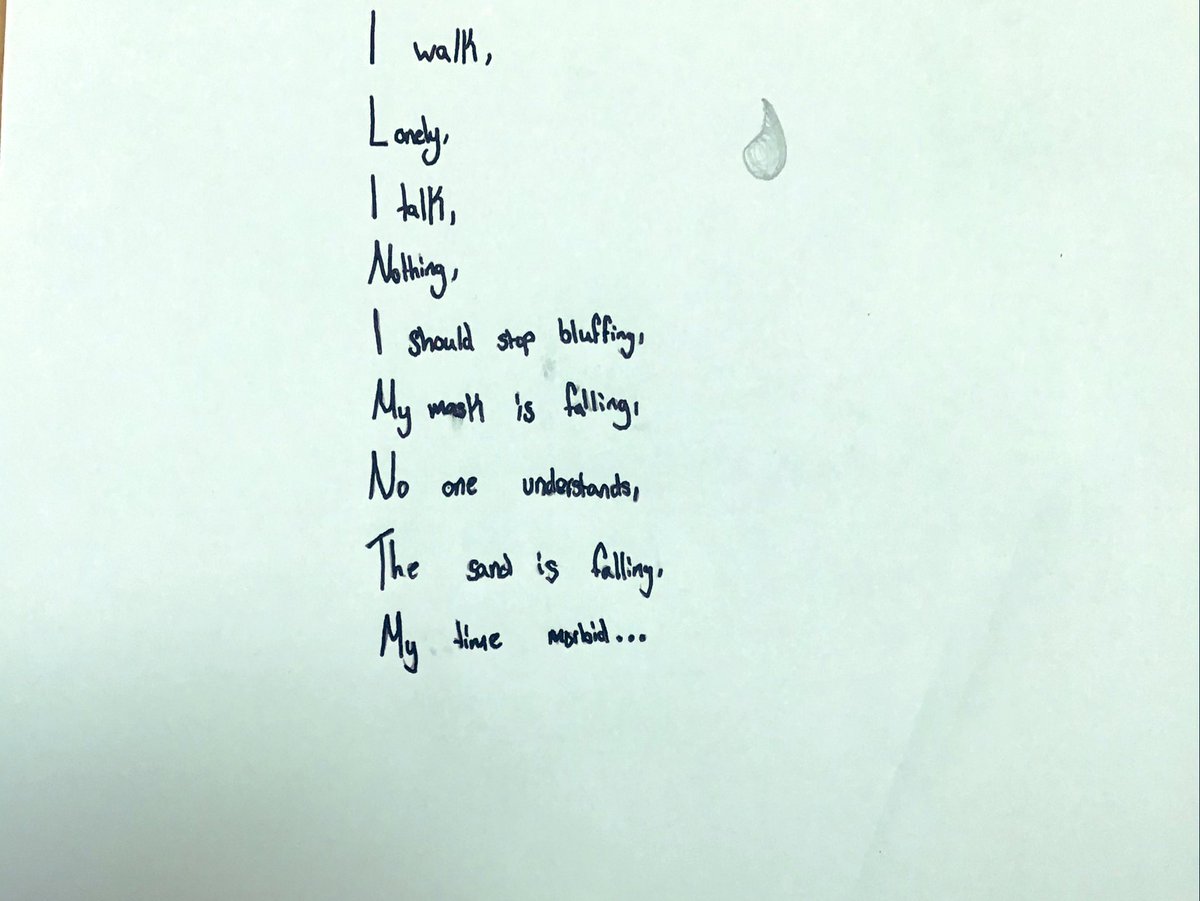 I walk,
Lonely,
I talk,
Nothing,
I should stop bluffing,
My mask is falling,
No one understands,
The sand is falling,
My time morbid...